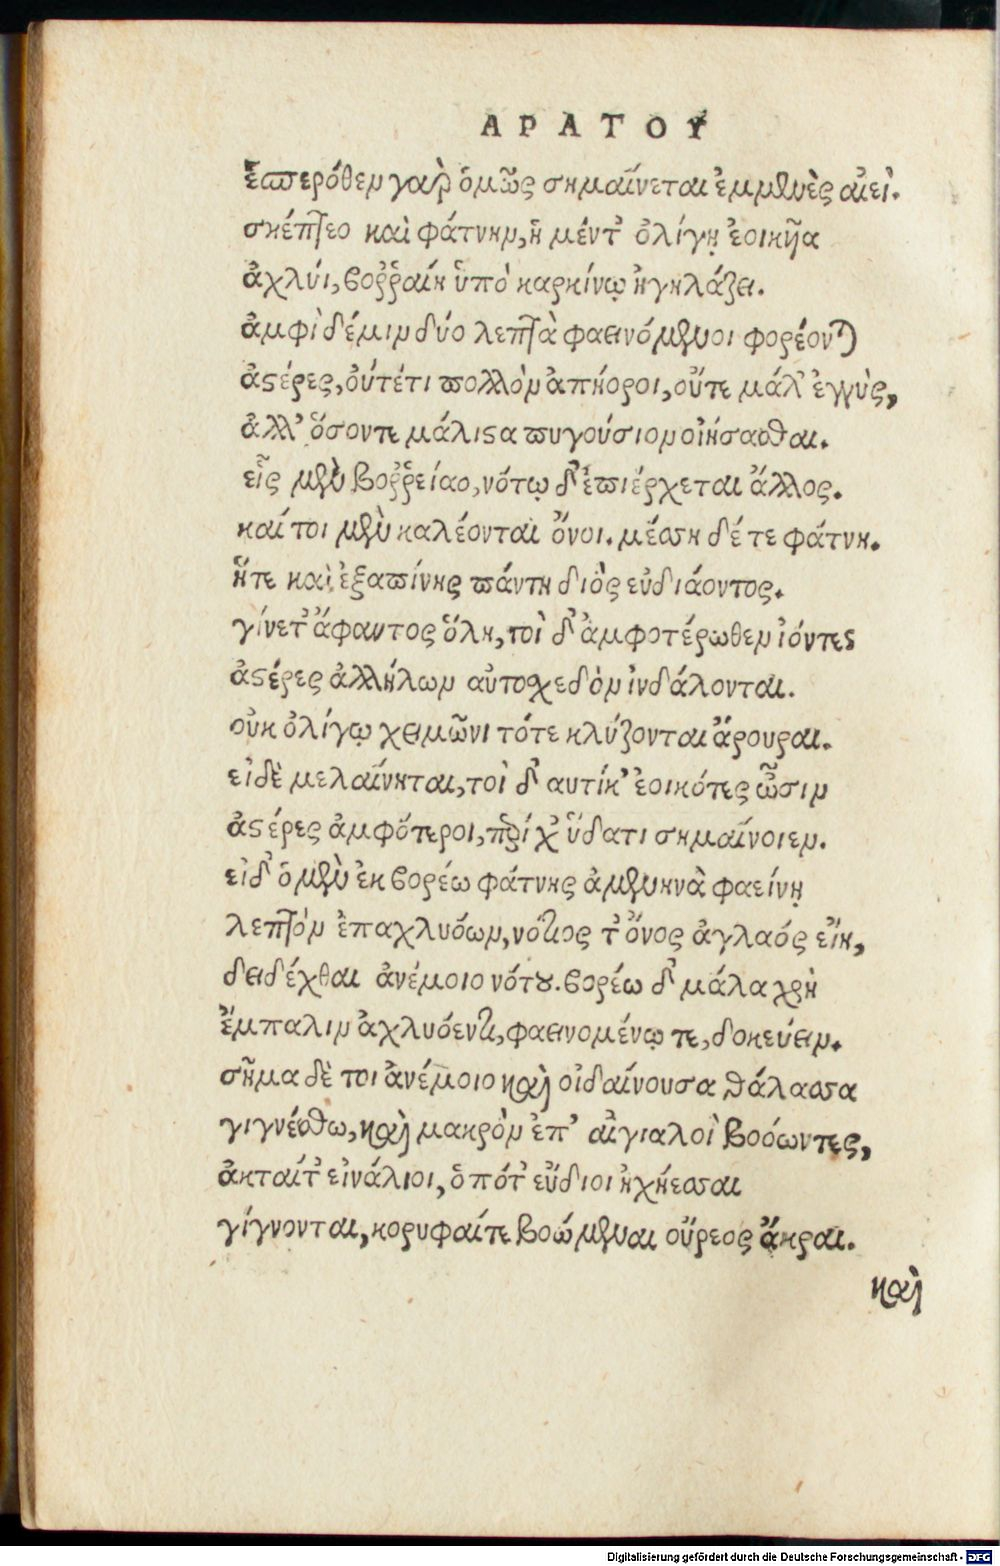 ΑΡΑΤΟΥ
ἑσπερόθεν γὰρ ὁμῶς σημαίνεται ἐμμενὲς αἰεὶ.
σκέπτεο καὶ φάτνην, ἡ μέντ' ὀλίγῃ ἐοικῆα
ἀχλύϊ, βοῤῥαίη ὑπὸ καρκίνῳ ἡγηλάζει.
ἀμφὶ δέ μιν δύο λεπτὰ φαεινόμενοι φορέονται
ἀστέρες, οὐτέ τι πολλὸν ἀπήοροι, οὔτε μάλ' ἐγγὺς,
ἀλλ' ὅσον τε μάλιστα πυγούσιον οἰήσασθαι.
εἷς μὲν βοῤῥείαο, νότῳ δ' ἐπιέρχεται ἄλλος.
καί τοι μὲν καλέονται ὄνοι. μέσση δέ τε φάτνη.
ἥτε καὶ ἐξαπίνης πάντη διὸς εὐδιάοντος.
γίνετ' ἄφαντος ὅλη, τοὶ δ' ἀμφοτέρωθεν ἰόντες
ἀστέρες ἀλλήλων αὐτοσχεδὸν ἰνδάλονται.
οὐκ ὀλίγῳ χειμῶνι τότε κλύζονται ἄρουραι.
εἰ δὲ μελαίνηται, τοὶ δ' αυτίκ' ἐοικότες ὦσιν
ἀστέρες ἀμφότεροι, περί χ' ὕδατι σημαίνοιεν.
εἰ δ' ὁ μὲν ἐκ βορέω φάτνης ἀμενηνὰ φαείνῃ
λεπτὸν ἐπαχλυόων, νότιος τ' ὄνος ἀγλαός εἴη,
δειδέχθαι ἀνέμοιο νότου. βορέω δ' μάλα χρὴ
ἔμπαλιν ἀχλυόεντι, φαεινομένῳ τε, δοκεύειν.
σῆμα δὲ τοι ἀνέμοιο καὶ οἰδαίνουσα θάλασσα
γιγνέσθω, καὶ μακρὸν ἐπ' αἰγιαλοὶ βοόωντες,
ἀκταίτ' εἰνάλιοι, ὁπότ' εὔδιοι ἠχήεσσαι
γίγνονται, κορυφαίτε βοώμεναι οὔρεος ἄκραι.
καὶ
Digitalisierung gefördert durch die Deutsche Forschungsgemeinschaft - DFG